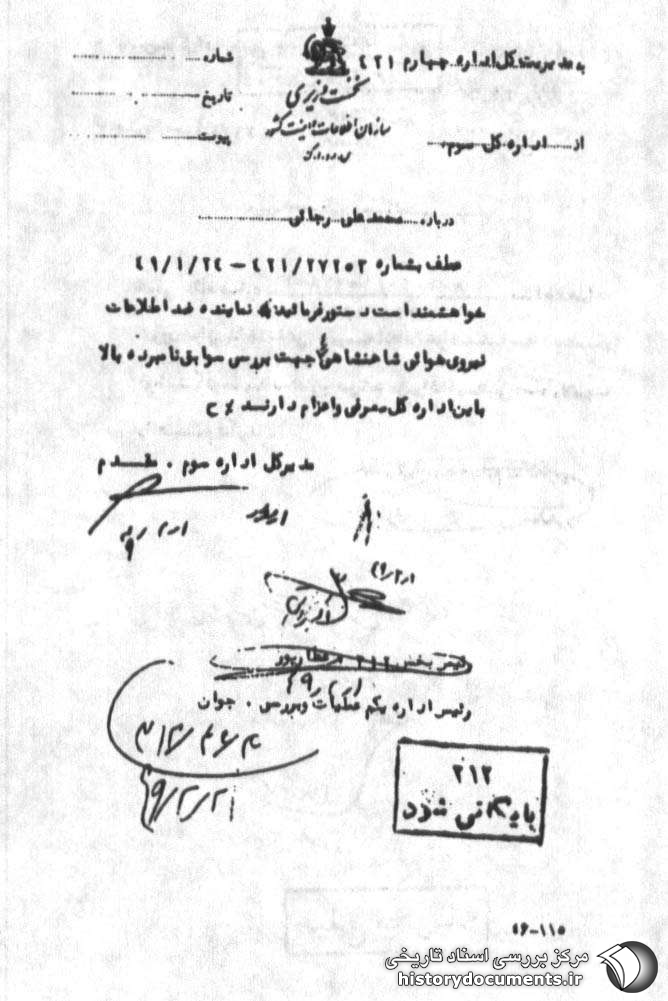 به مدیریت کل اداره چهارم ۴۲۱
شماره
نخست وزیری
تاریخ
سازمان اطلاعات و امنیت کشور
س.ا.و.ا.ک
از اداره کل سوم
پیوست
درباره محمدعلی رجائی
عطف بشماره ۴۲۱/۲۷۲۵۲ – ۴۹/۱/۲۴
خواهشمند است دستور فرمائید نماینده ضد اطلاعات
نیروی هوائی شاهنشاهی جهت بررسی سوابق نامبرده بالا
باین اداره کل معرفی و اعزام دارند ٪ ح
مدیر کل اداره سوم . مقدم
رئیس بخش ۳۱۲ . عطارپور
رئیس اداره یکم عملیات و بررسی . جوان
۴۹/۲/۲۱
۳۱۲
بایگانی شود
۴۶–۱۱۵
مرکز بررسی اسناد تاریخی
historydocuments.ir